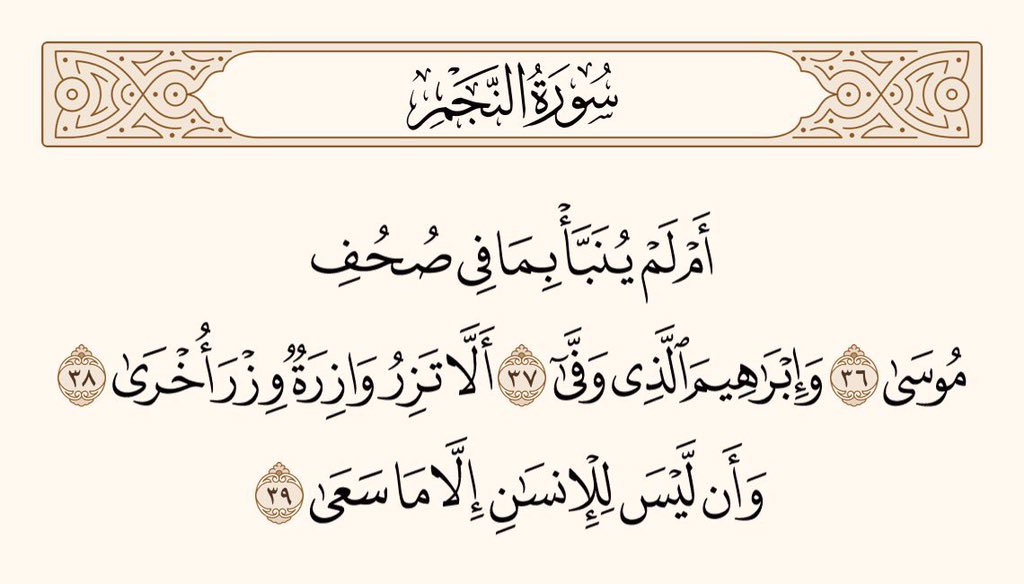 سُورَةُ النَّجْمِ
أَمْ لَمْ يُنَبَّأْ بِمَا فِي صُحُفِ
مُوسَىٰ ٣٦ وَإِبْرَٰهِيمَ ٱلَّذِى وَفَّىٰٓ ٣٧ أَلَّا تَزِرُ وَازِرَةٌ وِزْرَ أُخْرَىٰ ٣٨
وَأَن لَّيْسَ لِلْإِنسَـٰنِ إِلَّا مَا سَعَىٰ ٣٩